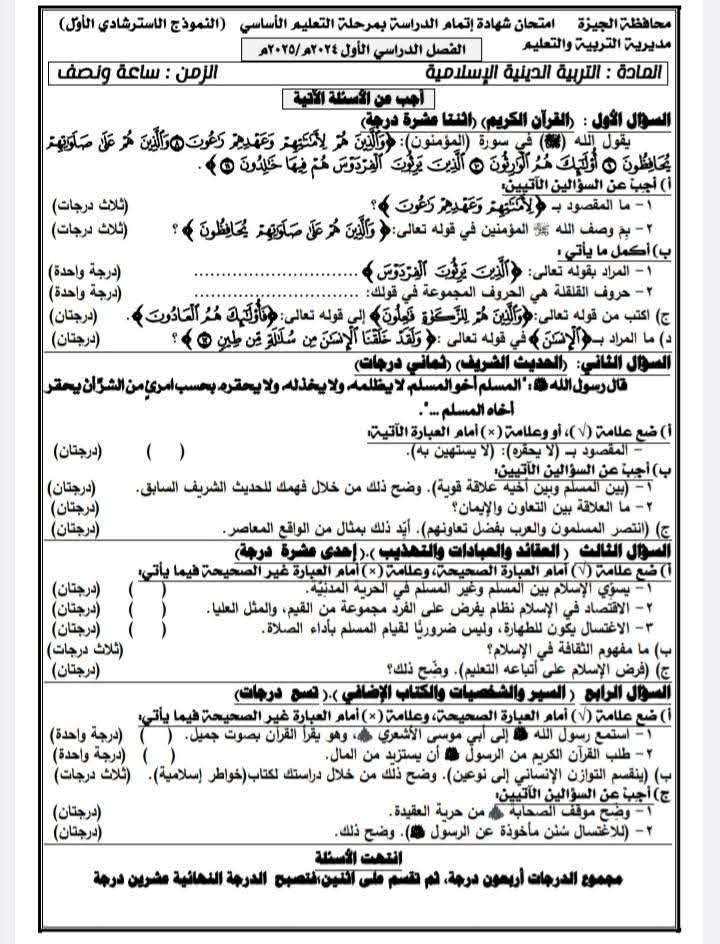 محافظة الجيزة امتحان شهادة إتمام الدراسة بمرحلة التعليم الأساسي (النموذج الاسترشادي الأول)
مديرية التربية والتعليم الفصل الدراسي الأول ٢٠٢٤م/٢٠٢٥م
المادة : التربية الدينية الإسلامية الزمن : ساعة ونصف
أجب عن الأسئلة الآتية
السؤال الأول : (القرآن الكريم) (اثنتا عشرة درجة)
يقول الله (ﷻ) في سورة (المؤمنون): ﴿وَالَّذِينَ هُمْ لِأَمَانَاتِهِمْ وَعَهْدِهِمْ رَاعُونَ ٨ وَالَّذِينَ هُمْ عَلَىٰ صَلَوَاتِهِمْ
يُحَافِظُونَ ٩ أُولَٰئِكَ هُمُ الْوَارِثُونَ ١٠ الَّذِينَ يَرِثُونَ الْفِرْدَوْسَ هُمْ فِيهَا خَالِدُونَ ١١﴾.
أ) أجب عن السؤالين الآتيين:
١- ما المقصود بـ ﴿لِأَمَانَاتِهِمْ وَعَهْدِهِمْ رَاعُونَ﴾؟ (ثلاث درجات)
٢- بِمَ وصف الله ﷻ المؤمنين في قوله تعالى: ﴿وَالَّذِينَ هُمْ عَلَىٰ صَلَوَاتِهِمْ يُحَافِظُونَ﴾؟ (ثلاث درجات)
ب) أكمل ما يأتي :
١- المراد بقوله تعالى: ﴿الَّذِينَ يَرِثُونَ الْفِرْدَوْسَ﴾ ................................. (درجة واحدة)
٢- حروف القلقلة هي الحروف المجموعة في قولك: ................................. (درجة واحدة)
ج) اكتب من قوله تعالى: ﴿وَالَّذِينَ هُمْ لِلزَّكَاةِ فَاعِلُونَ﴾ إلى قوله تعالى: ﴿فَأُولَٰئِكَ هُمُ الْعَادُونَ﴾. (درجتان)
د) ما المراد بـ ﴿الْإِنسَانَ﴾ في قوله تعالى : ﴿وَلَقَدْ خَلَقْنَا الْإِنسَانَ مِن سُلَالَةٍ مِّن طِينٍ ١٢﴾؟ (درجتان)
السؤال الثاني: (الحديث الشريف) (ثماني درجات)
قال رسول الله ﷺ: "المسلم أخو المسلم، لا يظلمه، ولا يخذله، ولا يحقره، بحسب امرئ من الشر أن يحقر
أخاه المسلم ...".
أ) ضع علامة (√)، أو وعلامة (×) أمام العبارة الآتية:
- المقصود بـ (لا يحقره): (لا يستهين به). ( ) (درجتان)
ب) أجب عن السؤالين الآتيين:
١- (بين المسلم وبين أخيه علاقة قوية). وضح ذلك من خلال فهمك للحديث الشريف السابق. (درجتان)
٢- ما العلاقة بين التعاون والإيمان؟ (درجتان)
ج) (انتصر المسلمون والعرب بفضل تعاونهم). أيّد ذلك بمثال من الواقع المعاصر. (درجتان)
السؤال الثالث ( العقائد والعبادات والتهذيب ).( إحدى عشرة درجة)
أ) ضع علامة (√) أمام العبارة الصحيحة، وعلامة (×) أمام العبارة غير الصحيحة فيما يأتي:
١- يسوّي الإسلام بين المسلم وغير المسلم في الحرية المدنيّة. ( ) (درجتان)
٢- الاقتصاد في الإسلام نظام يفرض على الفرد مجموعة من القيم، والمثل العليا. ( ) (درجتان)
٣- الاغتسال يكون للطهارة، وليس ضروريًا لقيام المسلم بأداء الصلاة. ( ) (درجتان)
ب) ما مفهوم الثقافة في الإسلام؟ (ثلاث درجات)
ج) (فرض الإسلام على أتباعه التعليم). وضِّح ذلك؟ (درجتان)
السؤال الرابع ( السير والشخصيات والكتاب الإضافي ).( تسع درجات)
أ) ضع علامة (√) أمام العبارة الصحيحة، وعلامة (×) أمام العبارة غير الصحيحة فيما يأتي:
١- استمع رسول الله ﷺ إلى أبي موسى الأشعري، وهو يقرأ القرآن بصوت جميل. ( ) (درجة واحدة)
٢- طلب القرآن الكريم من الرسول ﷺ أن يستزيد من المال. ( ) (درجة واحدة)
ب) (ينقسم التوازن الإنساني إلى نوعين). وضح ذلك من خلال دراستك لكتاب(خواطر إسلامية). (ثلاث درجات)
ج) أجب عن السؤالين الآتيين:
١- وضِح موقف الصحابة من حرية العقيدة. (درجتان)
٢- (للاغتسال سُنَن مأخوذة عن الرسول ﷺ). وضح ذلك. (درجتان)
انتهت الأسئلة
مجموع الدرجات أربعون درجة، ثم تقسم على اثنين،فتصبح الدرجة النهائية عشرين درجة